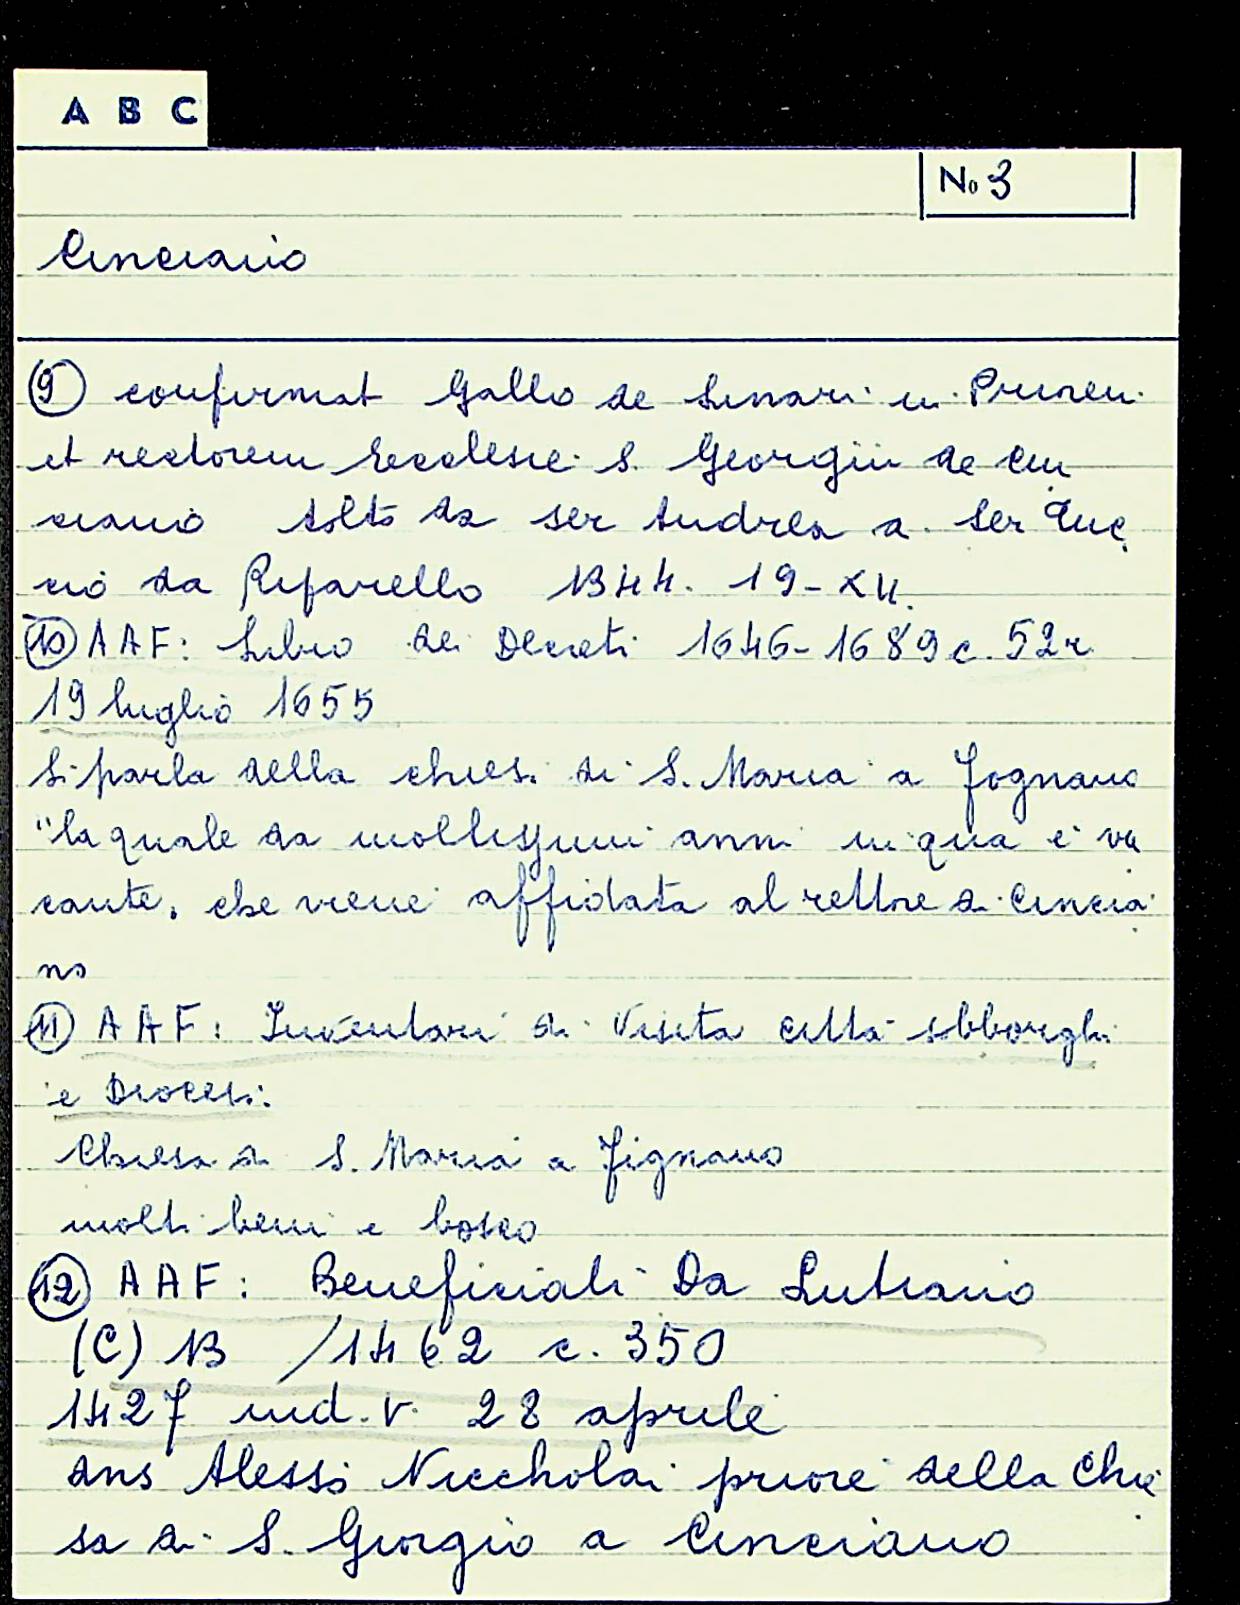 A B C
No 3
Cinciano
⑨ confirmat Gallo de in
et rectorem Ecclesie S. Georgii de Cin
ciano tolto da ser Andrea a Ser
cio da Riparello 1344. 19-XII.
⑩ AAF: Libro dei Decreti 1646-1689 c. 52r
19 luglio 1655
Si parla della chiesa di S. Maria a Fognano
"la quale da moltissimi anni in qua è va
cante, che viene affidata al rettore di Cincia
no
⑪ AAF: Inventari di Visita città sobborghi
e Diocesi.
Chiesa di S. Maria a Fignano
molti beni e bosco
⑫ AAF: Beneficiali Da Lutiano
(C) 13 /1462 c. 350
1427 ind. V. 28 aprile
dns Alesso Niccholai priore della Chie
sa di S. Giorgio a Cinciano